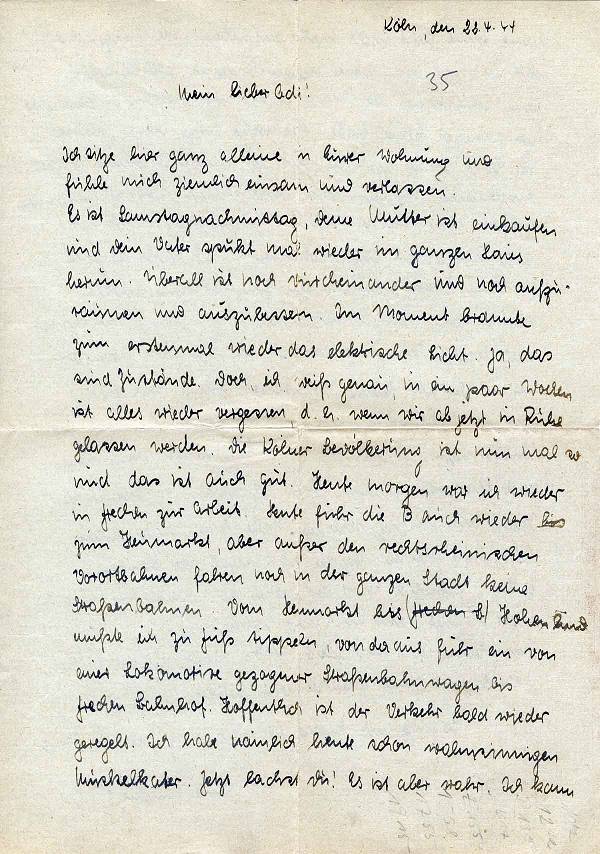 Köln, den 22.4.44
35
Mein lieber Edi!
Ich sitze hier ganz alleine in Eurer Wohnung und
fühle mich ziemlich einsam und verlassen.
Es ist Samstagnachmittag, deine Mutter ist einkaufen
und dein Vater spukt mal wieder im ganzen Haus
herum. Überall ist noch durcheinander und noch aufzu-
räumen und auszubessern. Im Moment brannte
zum erstenmal wieder das elektrische Licht. Ja, das
sind Zustände. Doch, ich weiß genau, in ein paar Wochen
ist alles wieder vergessen, d. h. wenn wir ab jetzt in Ruhe
gelassen werden. Die Kölner Bevölkerung ist nun mal so
und das ist auch gut. Heute morgen war ich wieder
in Frechen zur Arbeit. Heute fuhr die B auch wieder bis
zum Heumarkt, aber außer den rechtsrheinischen
Vorortbahnen fahren noch in der ganzen Stadt keine
Straßenbahnen. Vom Heumarkt bis (Frechen B) Hohen Lind
mußte ich zu Fuß tippeln, von da aus fuhr ein von
einer Lokomotive gezogener Straßenbahnwagen bis
Frechen Bahnhof. Hoffentlich ist der Verkehr bald wieder
geregelt. Ich habe nämlich heute schon wahnsinnigen
Muskelkater. Jetzt lachst du! Es ist aber wahr. Ich kann